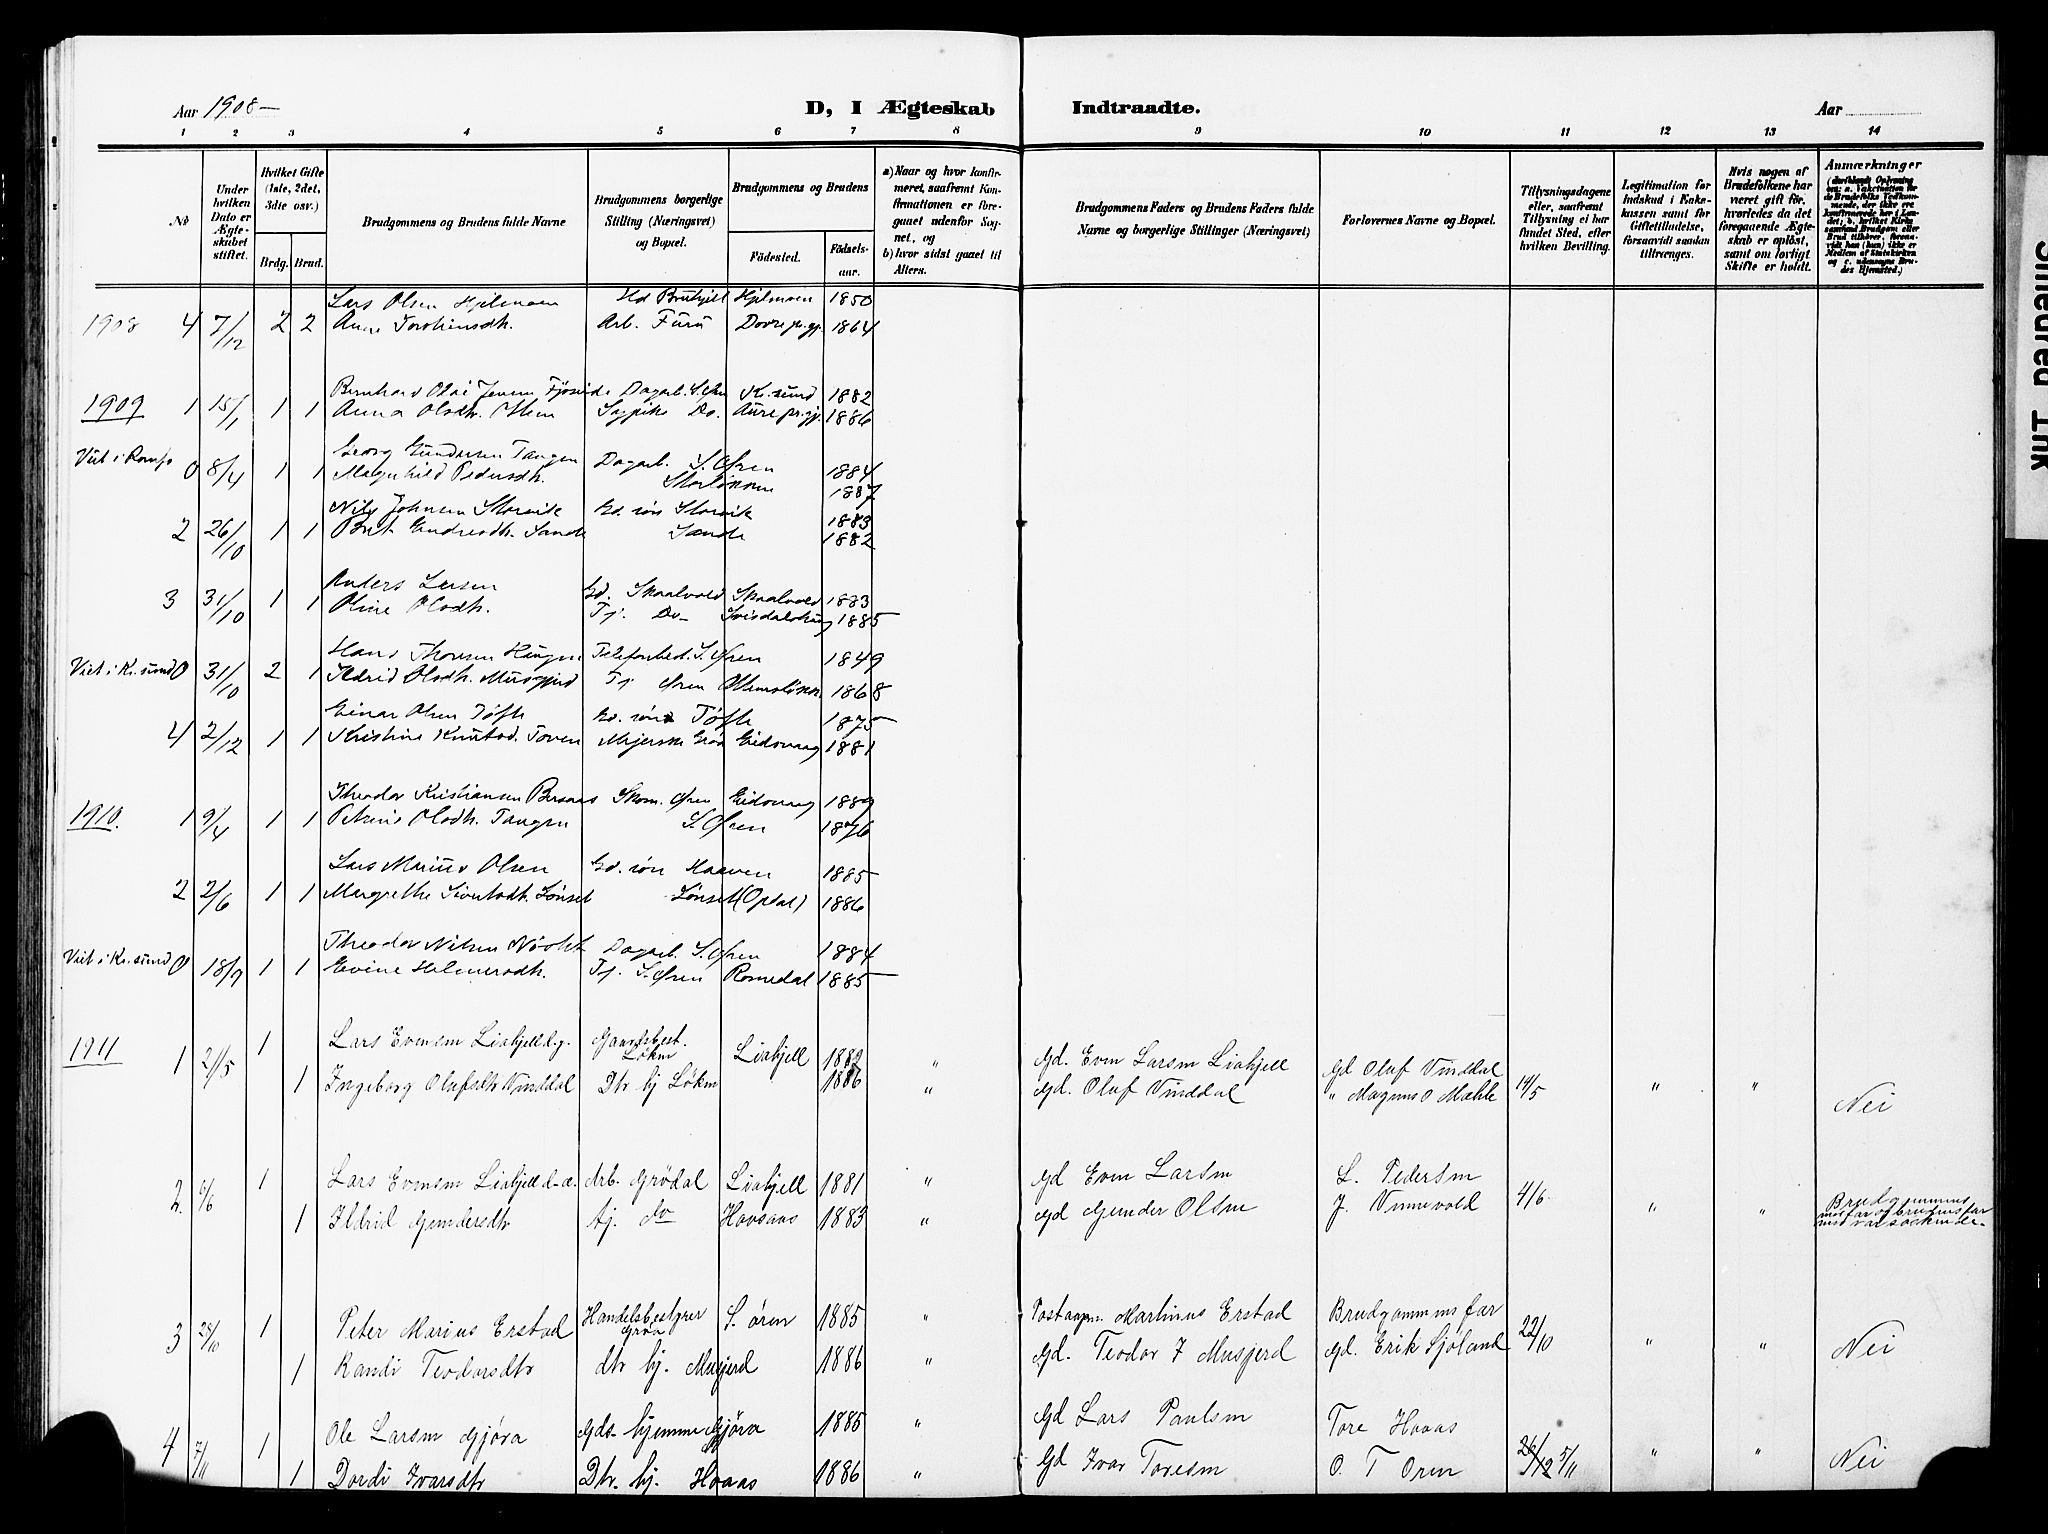 Aar 1908 –
D, I Ægteskab Indtraadte.
Aar
1 2 3 4 5 6 7 8 9 10 11 12 13 14
No
Under hvilken Dato er Ægteskabet stiftet.
Hvilket Gifte (1ste, 2det, 3die osv.)
Brdg. Brud.
Brudgommens og Brudens fulde Navne
Brudgommens borgerlige Stilling (Næringsvei) og Bopæl.
Brudgommens og Brudens
Fødested. Fødselsaar.
a) Naar og hvor konfirmeret, saafremt Konfirmationen er foregaaet udenfor Sognet, og
b) hvor sidst gaaet til Alters.
Brudgommens Faders og Brudens Faders fulde Navne og borgerlige Stillinger (Næringsvei)
Forlovernes Navne og Bopæl.
Tillysningsdagene eller, saafremt Tillysning ei har fundet Sted, efter hvilken Bevilling.
Legitimation for Indskud i Enkekassen samt for Giftetilladelse, forsaavidt saadan tiltrænges.
Hvis nogen af Brudefolkene har været gift før, hvorledes da det foregaaende Ægteskab er opløst, samt om lovligt Skifte er holdt.
Anmærkninger
Lars Olsen Hjelmoen Hjelmoen 1850
1908 4 7/12 2 2 Anne Torstensdh. Arb. Furu Dovre pr.gj. 1864
Bernhard Olai Jensen Dagarb. S. Øren Kr.sund 1882
1909 1 15/1 1 1 Anna Olsdh. Do. Aure pr.gj. 1886
Georg Gundersen Tangen Dagarb. S. Øren 1884
Viet i 0 8/4 1 1 Magnhild Pedersdh. 1887
Nils Johnsen Storvik Gd. søn Storvik 1883
2 26/10 1 1 Brit Endresdh. Sande Sande 1882
Anders Larsen Gd. Skaalvold Skaalvold 1883
3 31/10 1 1 Oline Olsdh. Tj. Do 1885
Hans Thoresen Haugen Telefonbest. S. Øren 1849
Viet i Kr.sund 0 31/10 2 1 Ildrid Olsdh. Musgjerd Tj Øren 1868
Einar Olsen Tøfte Gd. søn Tøfte 1875
4 2/12 1 1 Kristine Knutsd. Toven Meierske Grøa Eidsvaag 1881
Theodor Kristiansen Skom. Øren Eidsvaag 1889
1910. 1 9/4 1 1 Petrine Olsdh. Tangen S. Øren 1876
Lars Marius Olsen Gd. søn Haaven 1885
2 2/6 1 1 Margrethe Sivertsdh. Lønset Lønset (Opdal) 1886
Theodor Nilsen Dagarb. S. Øren 1884
Viet i Kr.sund 0 18/9 1 1 Evine Helmersdh. Tj. S. Øren Romedal 1885
1911 1 2/5 1 Lars Evensen Liahjell d.y. Gaardsbest. Løken Liahjell 1882 " Gd. Even Larsen Liahjell Gd Oluf Vinddal
1 Ingeborg Olufsdtr Vinddal Dtr hj Løken 1886 " Gd. Oluf Vinddal " Magnus O Mæhle 14/5 " " Nei
2. 6/6 1 Lars Evensen Liahjell d.æ. Arb. Grødal Liahjell 1881 " Gd Even Larsen L. Pedersen
1 Ildrid Gundersdtr tj. do Hovsaas 1883 " Gd Gunder Olsen J. Vinnevold 4/6 " " Brudgommens morfar og brudens far
3 28/10 1 Peter Marius Erstad Handelsbestyrer Grøa S. øren 1885 " Postaapn. Martinus Erstad Brudgommens far
1 Randi Teodorsdtr dtr hj. Musjerd 1886 " Gd. Teodor J Musjerd Gd. Erik Sjøland 22/10 " " Nei
4 7/11 1 Ole Larsen Gjøra Gds. hjemme Gjøra 1885 " Gd Lars Paulsen Tore Hoaas
1 Dordi Ivarsdtr Dtr. hj. Hoaas 1886 " Gd Ivar Toresen O. T Oren 5/11 " " Nei